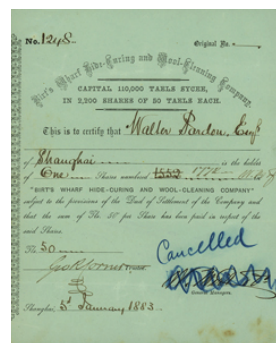 No. 1248.
Original No.
Birt's Wharf Hide-Curing and Wool-Cleaning Company.
CAPITAL 110,000 TAELS SYCEE,
IN 2,200 SHARES OF 50 TAELS EACH.
This is to certify that Walter Pardon, Esqr
of Shanghai is the holder
of One Shares numbered 1775
"BIRT'S WHARF HIDE-CURING AND WOOL-CLEANING COMPANY"
subject to the provisions of the Deed of Settlement of the Company and
that the sum of Tls. 50 per Share has been paid in respect of the
said Shares.
Tls. 50
Cancelled
General Managers.
Shanghai, 5th January 1883.